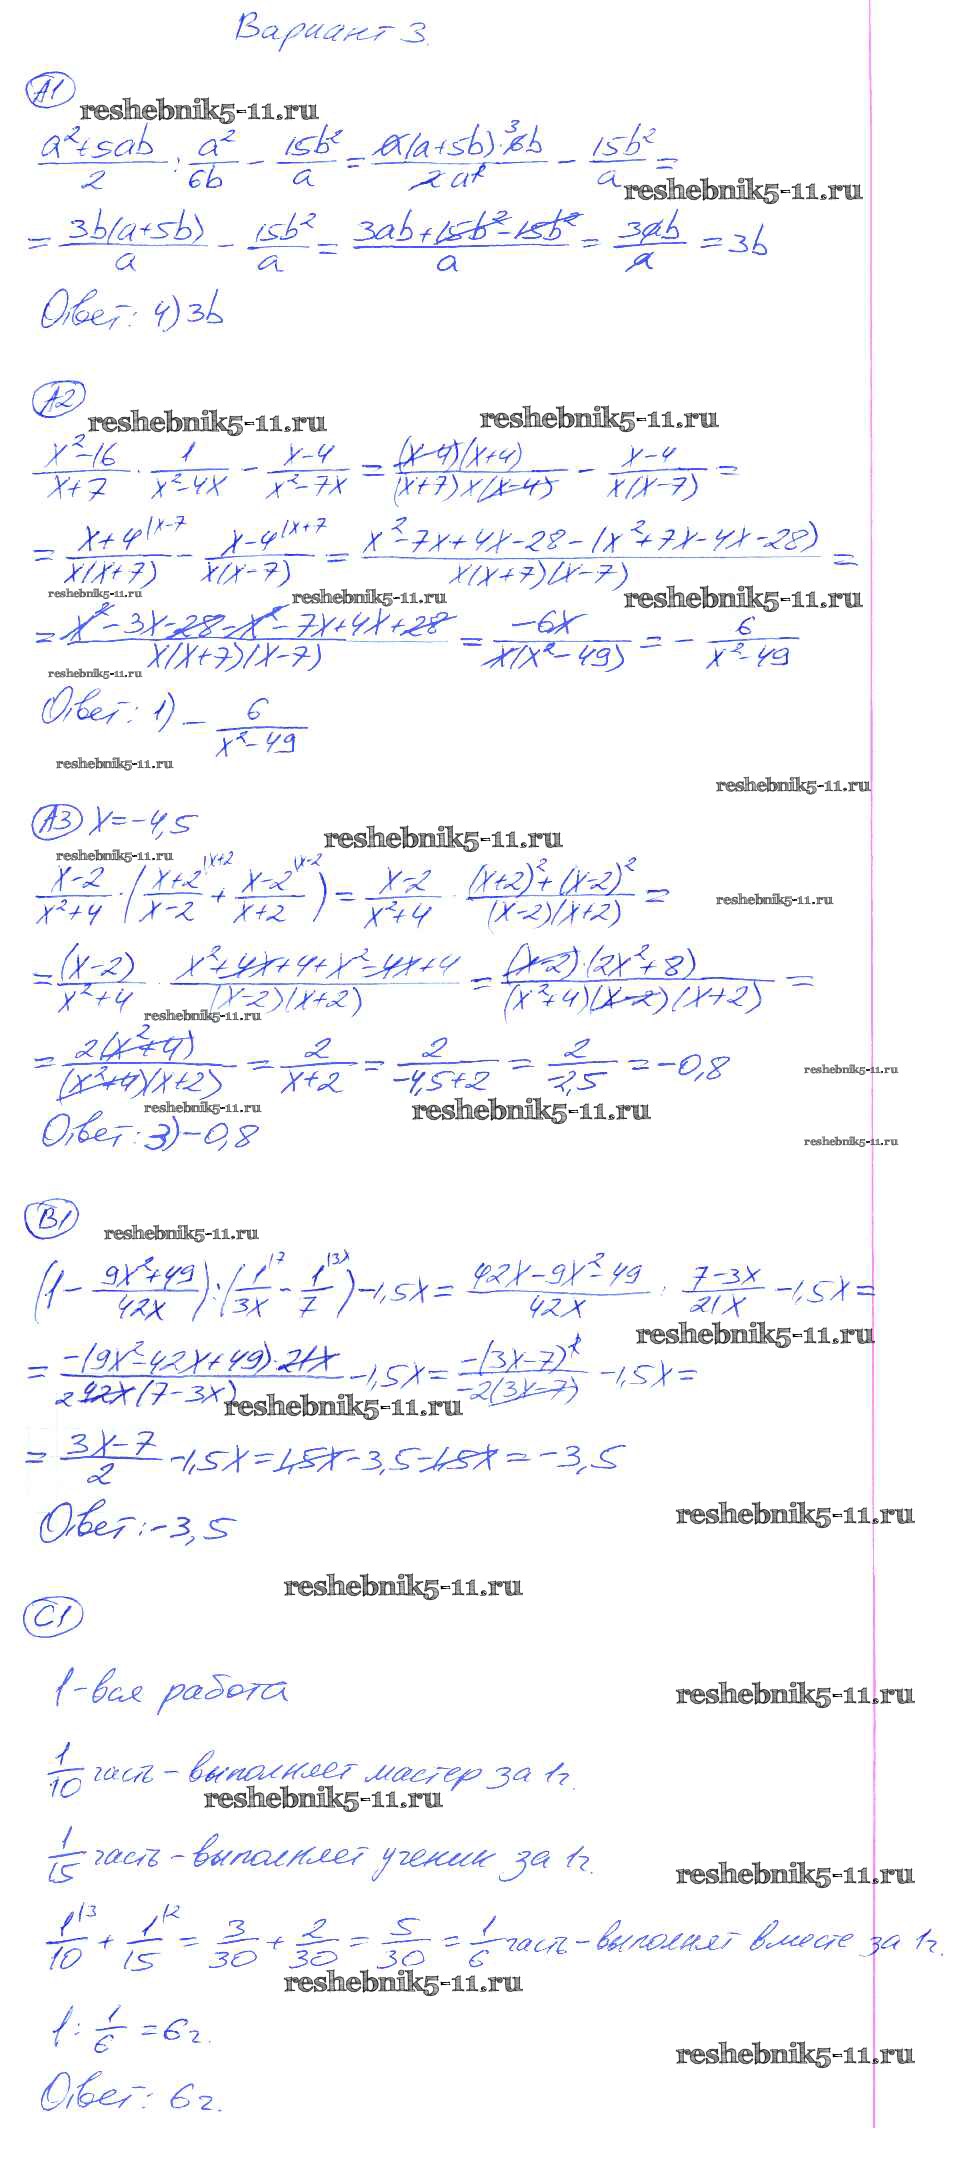 Вариант 3.
A1
reshebnik5-11.ru
(a²+5ab)/2 : a²/6b − 15b²/a = a(a+5b)·6b 3/2a² − 15b²/a =
reshebnik5-11.ru
= 3b(a+5b)/a − 15b²/a = (3ab+15b²−15b²)/a = 3ab/a = 3b
Ответ: 4) 3b
A2
reshebnik5-11.ru reshebnik5-11.ru
(x²−16)/(x+7) · 1/(x²−4x) − (x−4)/(x²−7x) = (x−4)(x+4)/((x+7)x(x−4)) − (x−4)/(x(x−7)) =
= (x+4 |x−7)/(x(x+7)) − (x−4 |x+7)/(x(x−7)) = (x²−7x+4x−28−(x²+7x−4x−28))/(x(x+7)(x−7)) =
reshebnik5-11.ru reshebnik5-11.ru reshebnik5-11.ru
= (x²−3x−28−x²−7x+4x+28)/(x(x+7)(x−7)) = −6x/(x(x²−49)) = − 6/(x²−49)
reshebnik5-11.ru
Ответ: 1) − 6/(x²−49)
reshebnik5-11.ru
reshebnik5-11.ru
A3 x=−4,5
reshebnik5-11.ru
reshebnik5-11.ru
(x−2)/(x²+4) · ((x+2 |x+2)/(x−2) + (x−2 |x−2)/(x+2)) = (x−2)/(x²+4) · ((x+2)²+(x−2)²)/((x−2)(x+2)) =
reshebnik5-11.ru
= (x−2)/(x²+4) · (x²+4x+4+x²−4x+4)/((x−2)(x+2)) = (x−2)·(2x²+8)/((x²+4)(x−2)(x+2)) =
reshebnik5-11.ru
= 2(x²+4)/((x²+4)(x+2)) = 2/(x+2) = 2/(−4,5+2) = 2/−2,5 = −0,8
reshebnik5-11.ru
reshebnik5-11.ru reshebnik5-11.ru
Ответ: 3) −0,8
reshebnik5-11.ru
B1
reshebnik5-11.ru
(1− (9x²+49)/42x) : (1 |7/3x − 1 |3x/7) −1,5x = (42x−9x²−49)/42x : (7−3x)/21x −1,5x =
reshebnik5-11.ru
= −(9x²−42x+49)·21x/(2 42x(7−3x)) −1,5x = −(3x−7)²/(−2(3x−7)) −1,5x =
reshebnik5-11.ru
= (3x−7)/2 −1,5x = 1,5x−3,5−1,5x = −3,5
reshebnik5-11.ru
Ответ: −3,5
reshebnik5-11.ru
C1
1 − вся работа
reshebnik5-11.ru
1/10 часть − выполняет мастер за 1ч.
reshebnik5-11.ru
1/15 часть − выполняет ученик за 1ч.
reshebnik5-11.ru
1 |3/10 + 1 |2/15 = 3/30 + 2/30 = 5/30 = 1/6 часть − выполнят вместе за 1ч.
reshebnik5-11.ru
1 : 1/6 = 6ч.
reshebnik5-11.ru
Ответ: 6ч.